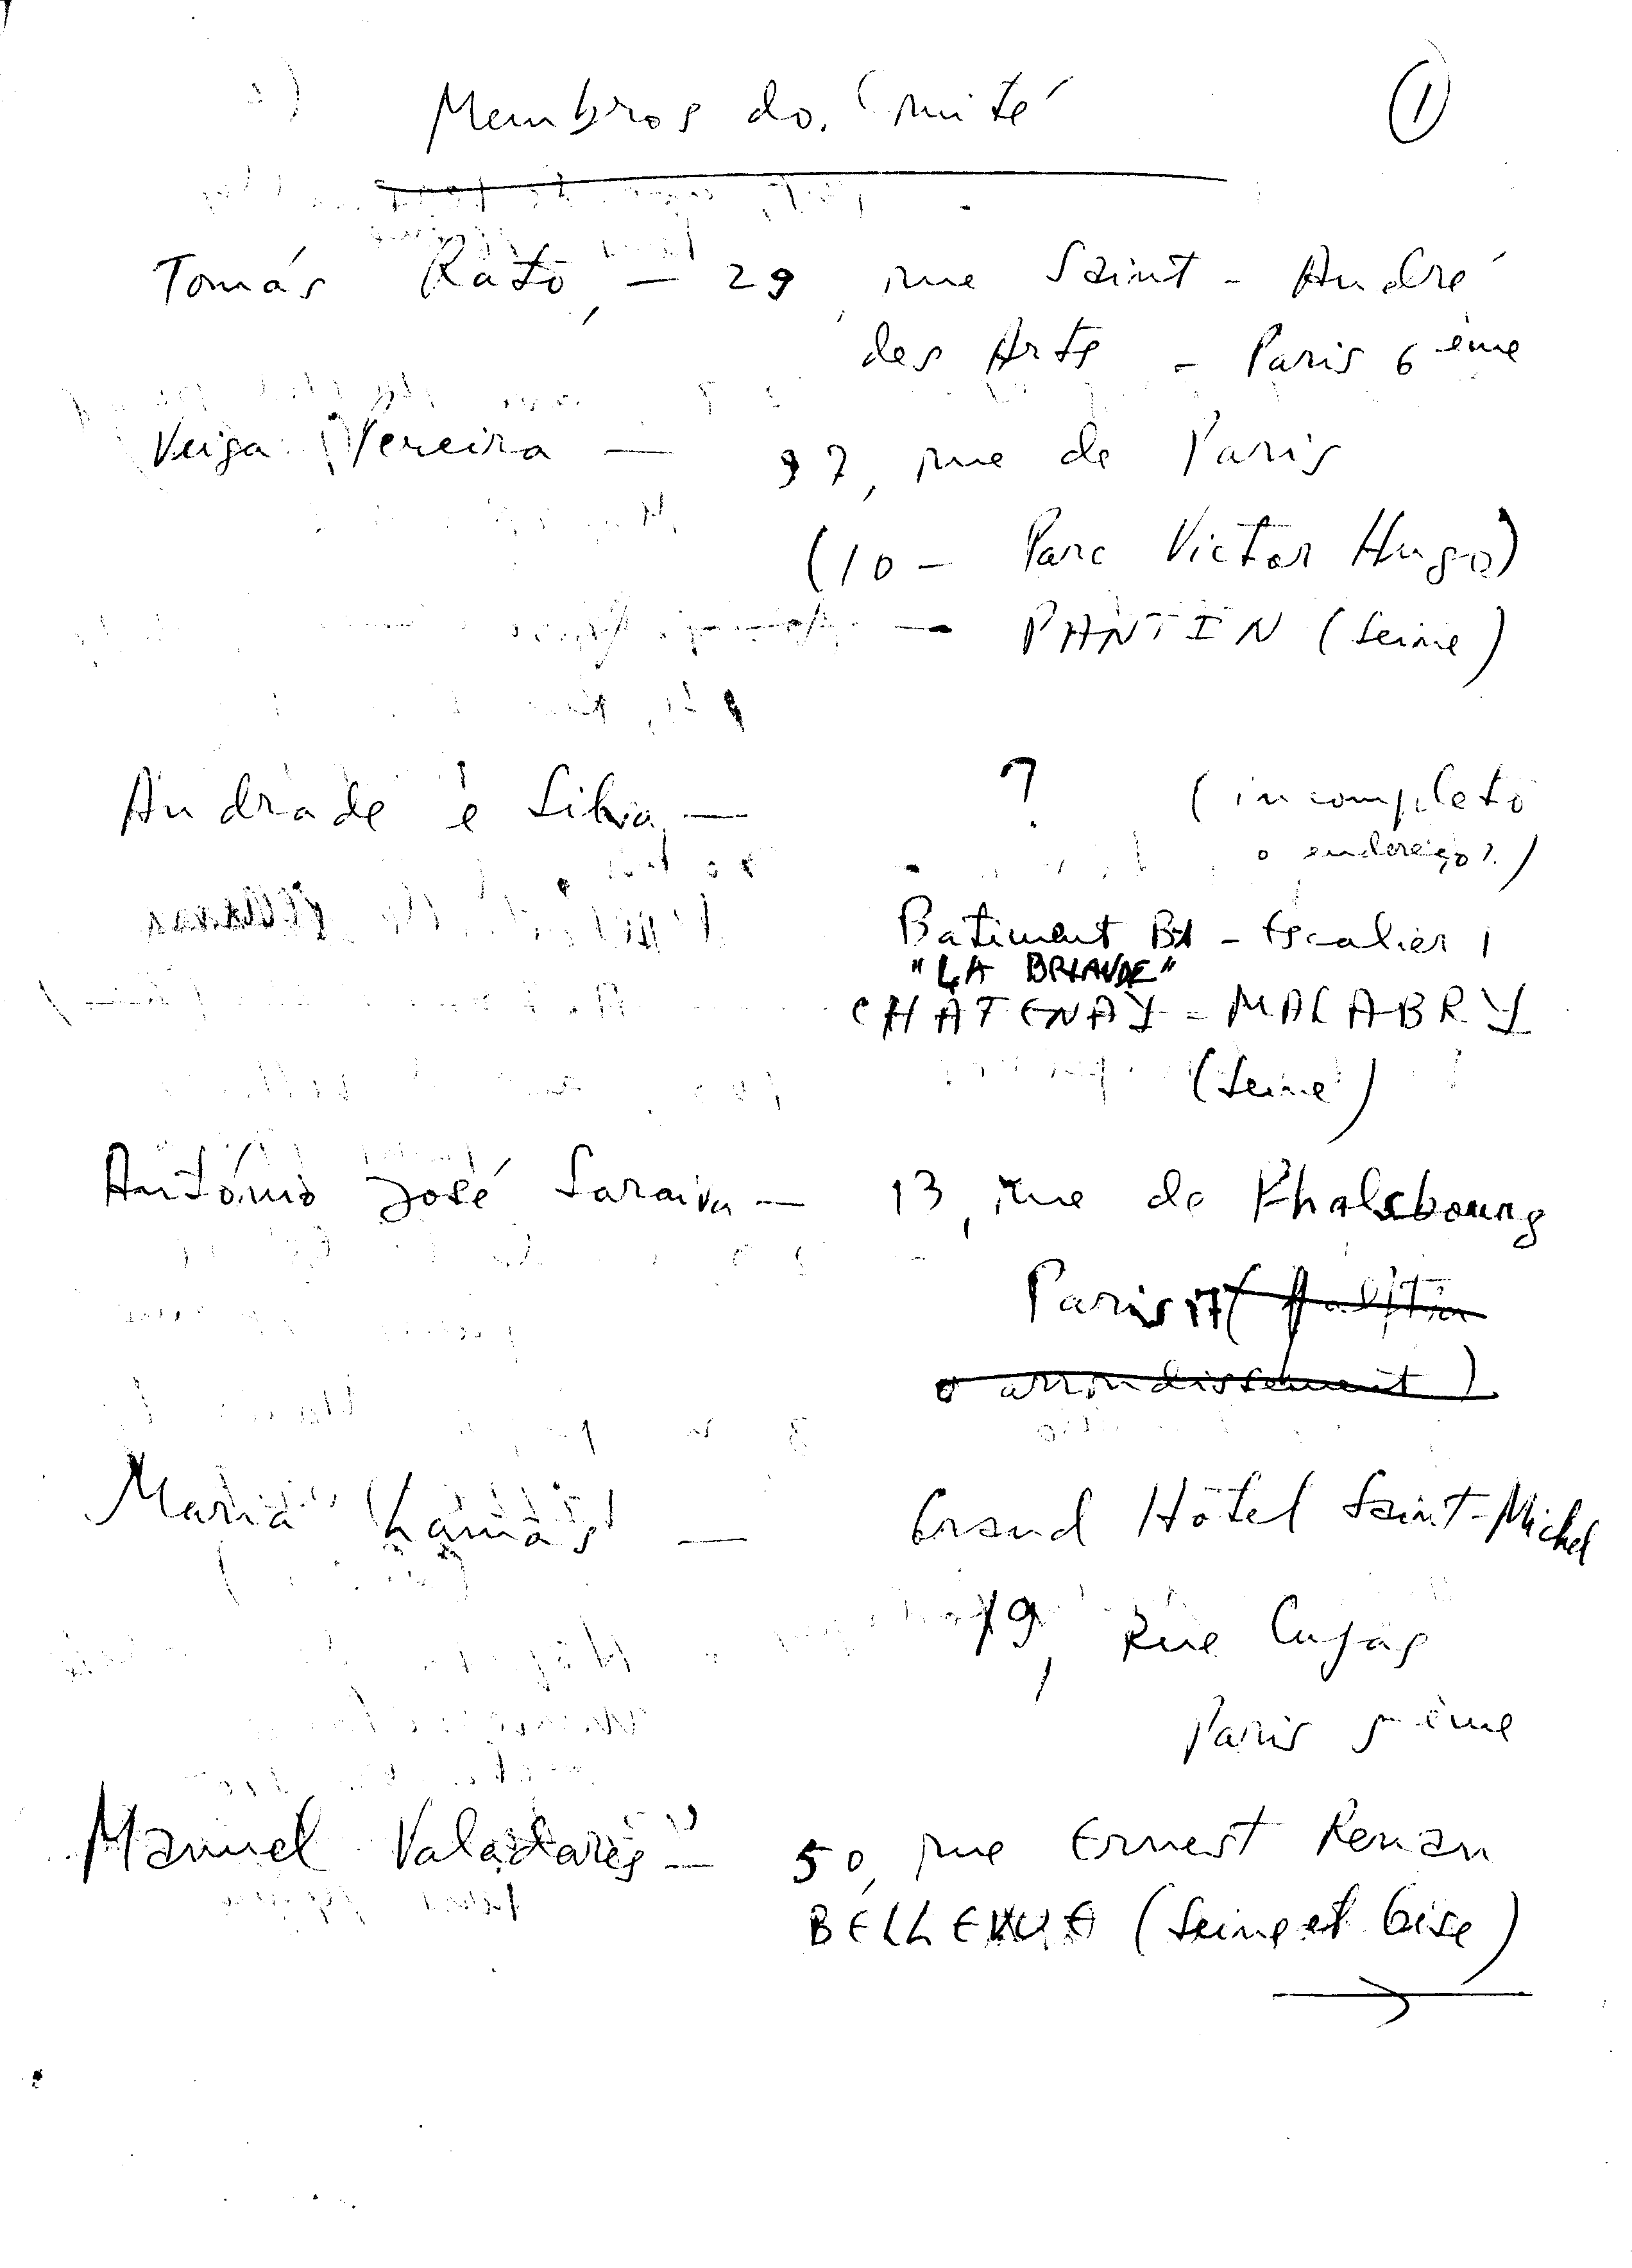 Membros do Comité
1
Tomás Rato, — 29, rue Saint-André
des Arts - Paris 6ème
Veiga Pereira — 97, rue de Paris
(10 - Parc Victor Hugo)
— PANTIN (Seine)
Andrade e Silva — ? (incompleto
o endereço?)
Batiment B1 - Escalier 1
"LA BRIANDE"
CHATENAY-MALABRY
(Seine)
António José Saraiva — 13, rue de Phalsbourg
Paris 17 (falta
o arrondissement)
Maria Lamas — Grand Hôtel Saint-Michel
19, Rue Cujas
Paris 5ème
Manuel Valadares — 50, rue Ernest Renan
BELLEVUE (Seine et Oise)